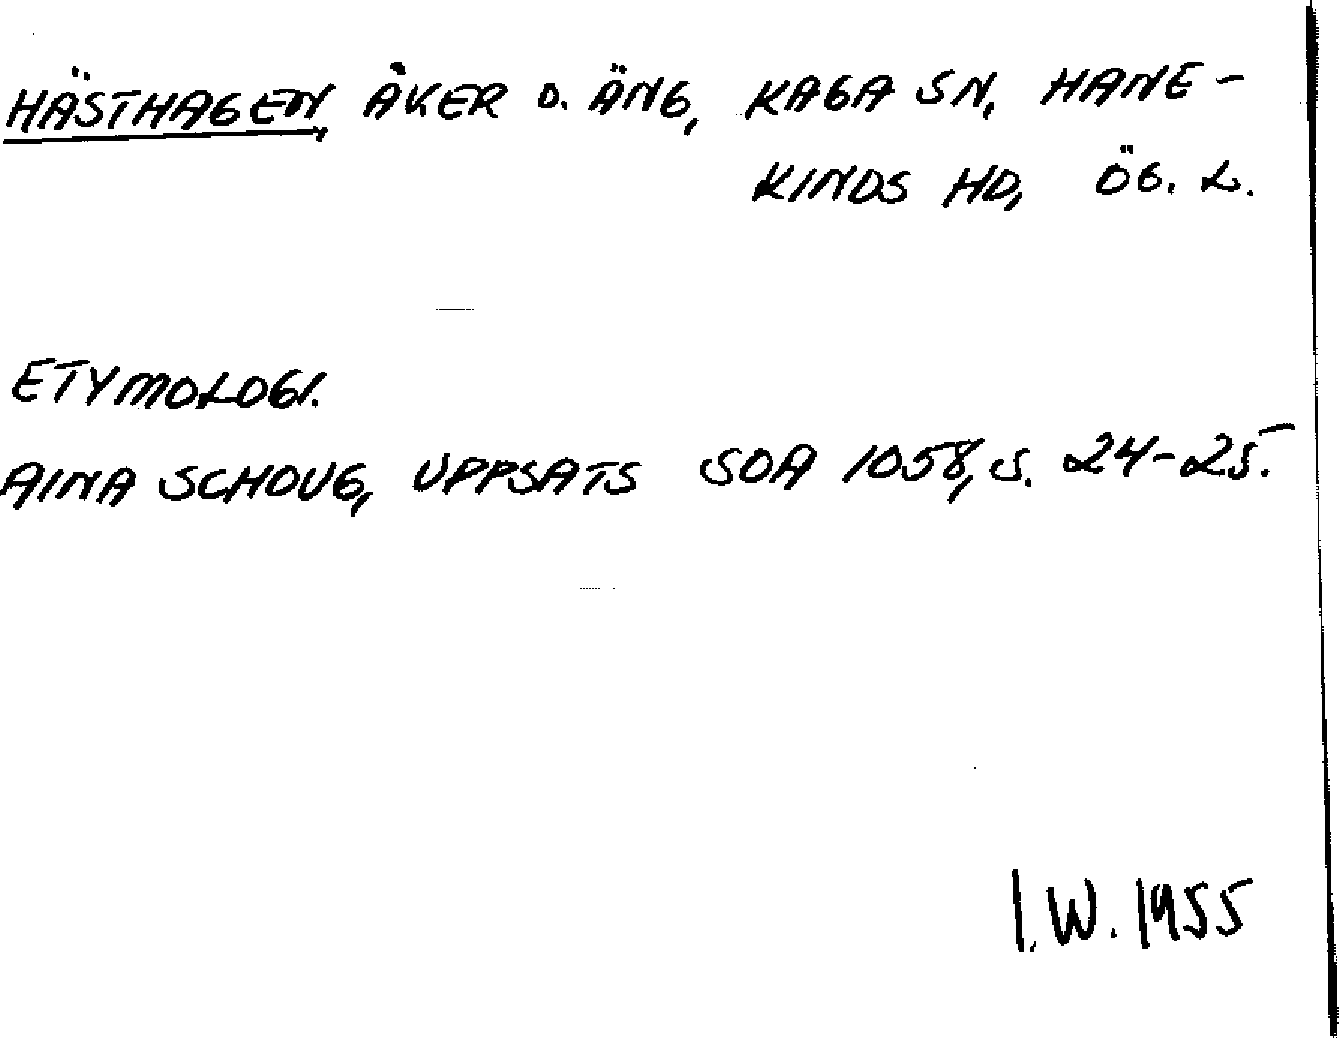 HÄSTHAGEN, ÅKER O. ÄNG, KAGA SN, HANE-
KINDS HD, ÖG. L.
ETYMOLOGI.
AINA SCHOUG, UPPSATS SOA 1058, S. 24-25.
I.W. 1955